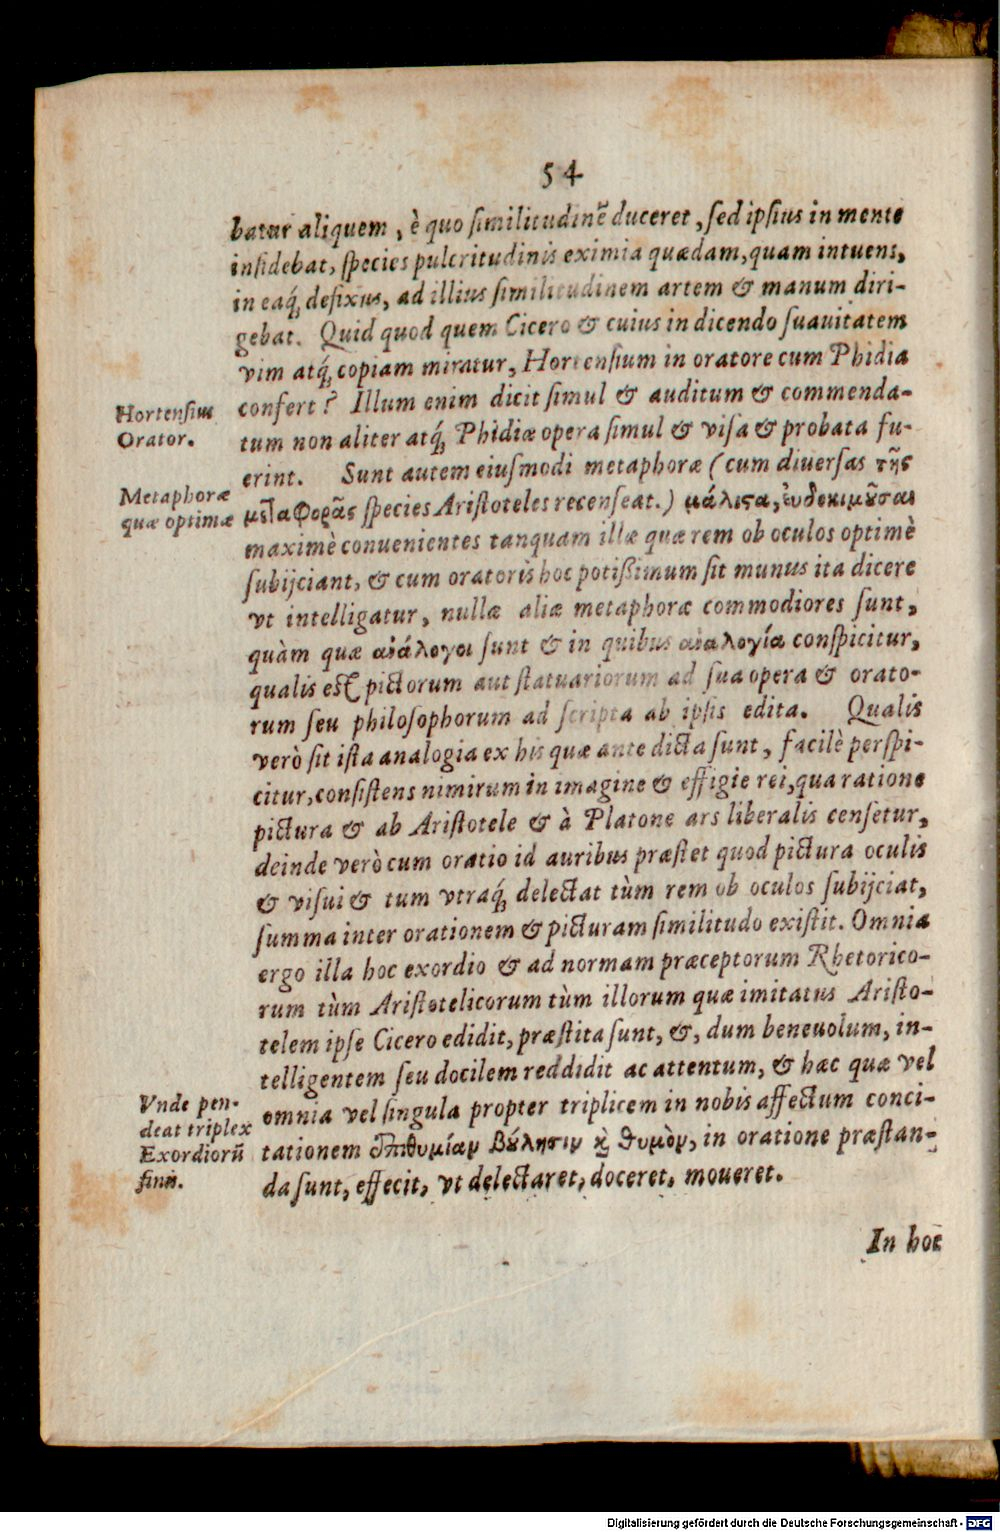 54
batur aliquem, è quo similitudinē duceret, sed ipsius in mente
insidebat, species pulcritudinis eximia quædam, quam intuens,
in eaq́; defixus, ad illius similitudinem artem & manum diri-
gebat. Quid quod quem Cicero & cuius in dicendo suauitatem
vim atq́; copiam miratur, Hortensium in oratore cum Phidia
confert? Illum enim dicit simul & auditum & commenda-
Hortensius
Orator.
tum non aliter atq́; Phidiæ opera simul & visa & probata fu-
erint. Sunt autem eiusmodi metaphoræ (cum diuersas τῆς
Metaphoræ
quæ optimæ
μεταφορᾶς species Aristoteles recenseat.) μάλιστα, ἐυδοκιμοῦσαι
maximè conuenientes tanquam illæ quæ rem ob oculos optimè
subijciant, & cum oratoris hoc potißimum sit munus ita dicere
vt intelligatur, nullæ aliæ metaphoræ commodiores sunt,
quàm quæ ἀνάλογοι sunt & in quibus ἀναλογία conspicitur,
qualis est pictorum aut statuariorum ad sua opera & orato-
rum seu philosophorum ad scripta ab ipsis edita. Qualis
verò sit ista analogia ex his quæ ante dicta sunt, facilè perspi-
citur, consistens nimirum in imagine & effigie rei, qua ratione
pictura & ab Aristotele & à Platone ars liberalis censetur,
deinde verò cum oratio id auribus præstet quod pictura oculis
& visui & tum vtraq́; delectat tùm rem ob oculos subijciat,
summa inter orationem & picturam similitudo existit. Omnia
ergo illa hoc exordio & ad normam præceptorum Rhetorico-
rum tùm Aristotelicorum tùm illorum quæ imitatus Aristo-
telem ipse Cicero edidit, præstita sunt, &, dum beneuolum, in-
telligentem seu docilem reddidit ac attentum, & hæc quæ vel
Vnde pen-
deat triplex
Exordiorū
finis.
omnia vel singula propter triplicem in nobis affectum conci-
tationem ἐπιθυμίαν βούλησιν καὶ θυμὸν, in oratione præstan-
da sunt, effecit, vt delectaret, doceret, moueret.
In hoc
Digitalisierung gefördert durch die Deutsche Forschungsgemeinschaft - DFG